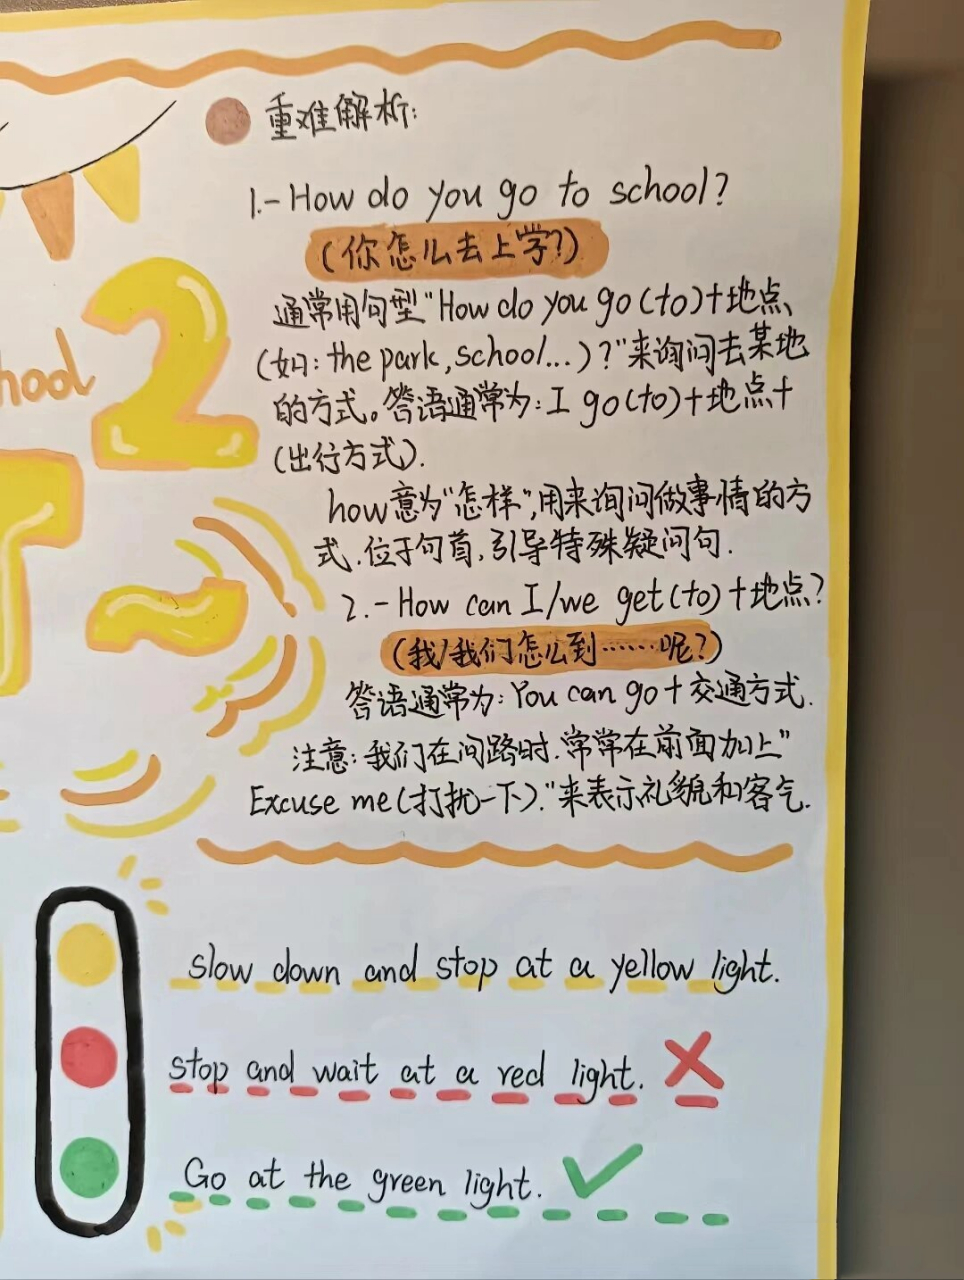 重难解析:
1.-How do you go to school?
(你怎么去上学?)
通常用句型"How do you go (to)+地点、
(如: the park, school...)?"来询问去某地
的方式。答语通常为: I go (to)+地点+
(出行方式).
how意为"怎样",用来询问做事情的方
式.位于句首,引导特殊疑问句.
2.-How can I/we get (to)+地点?
(我/我们怎么到……呢?)
答语通常为: You can go+交通方式.
注意:我们在问路时.常常在前面加上"
Excuse me(打扰一下)."来表示礼貌和客气.
hool 2
T~
slow down and stop at a yellow light.
stop and wait at a red light.
Go at the green light.